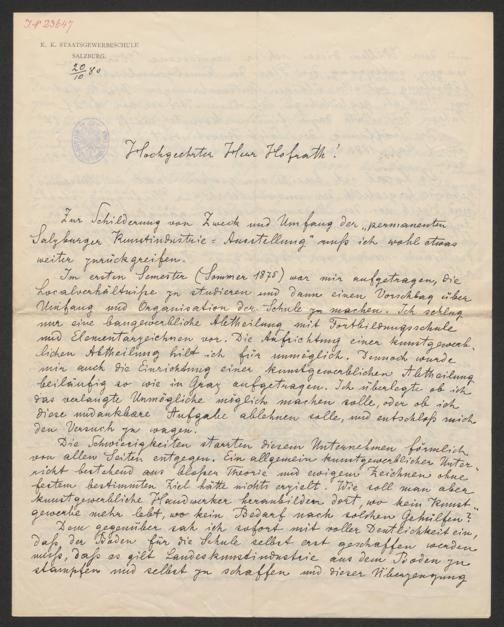 I.N 23647
K. K. STAATSGEWERBESCHULE
SALZBURG.
20/10 80
Hochgeehrter Herr Hofrath!
Zur Schilderung von Zweck und Umfang der „permanenten
Salzburger Kunstindustrie=Ausstellung" muß ich wohl etwas
weiter zurückgreifen.
Im ersten Semester (Sommer 1875) war mir aufgetragen, die
Localverhältniße zu studieren und dann einen Vorschlag über
Umfang und Organisation der Schule zu machen. Ich schlug
nur eine baugewerbliche Abtheilung mit Fortbildungsschule
und Elementarzeichnen vor. Die Aufrichtung einer kunstgewerb-
lichen Abtheilung hielt ich für unmöglich. Dennoch wurde
mir auch die Einrichtung einer kunstgewerblichen Abtheilung
beiläufig so wie in Graz aufgetragen. Ich überlegte ob ich
das verlangte Unmögliche möglich machen solle, oder ob ich
diese undankbare Aufgabe ablehnen solle, und entschloß mich
den Versuch zu wagen.
Die Schwierigkeiten starrten diesem Unternehmen förmlich
von allen Seiten entgegen. Ein allgemein kunstgewerblicher Unter-
richt bestehend aus bloßer Theorie und ewigem Zeichnen ohne
festem bestimmten Ziel hätte nichts erzielt. Wie soll man aber
kunstgewerbliche Handwerker heranbilden dort, wo kein Kunst-
gewerbe mehr lebt, wo kein Bedarf nach solchen Gehülfen?
Dem gegenüber sah ich sofort mit voller Deutlichkeit ein,
daß der Boden für die Schule selbst erst geschaffen werden
muß, daß es gilt Landeskunstindustrie aus dem Boden zu
stampfen und selbst zu schaffen und dieser Überzeugung